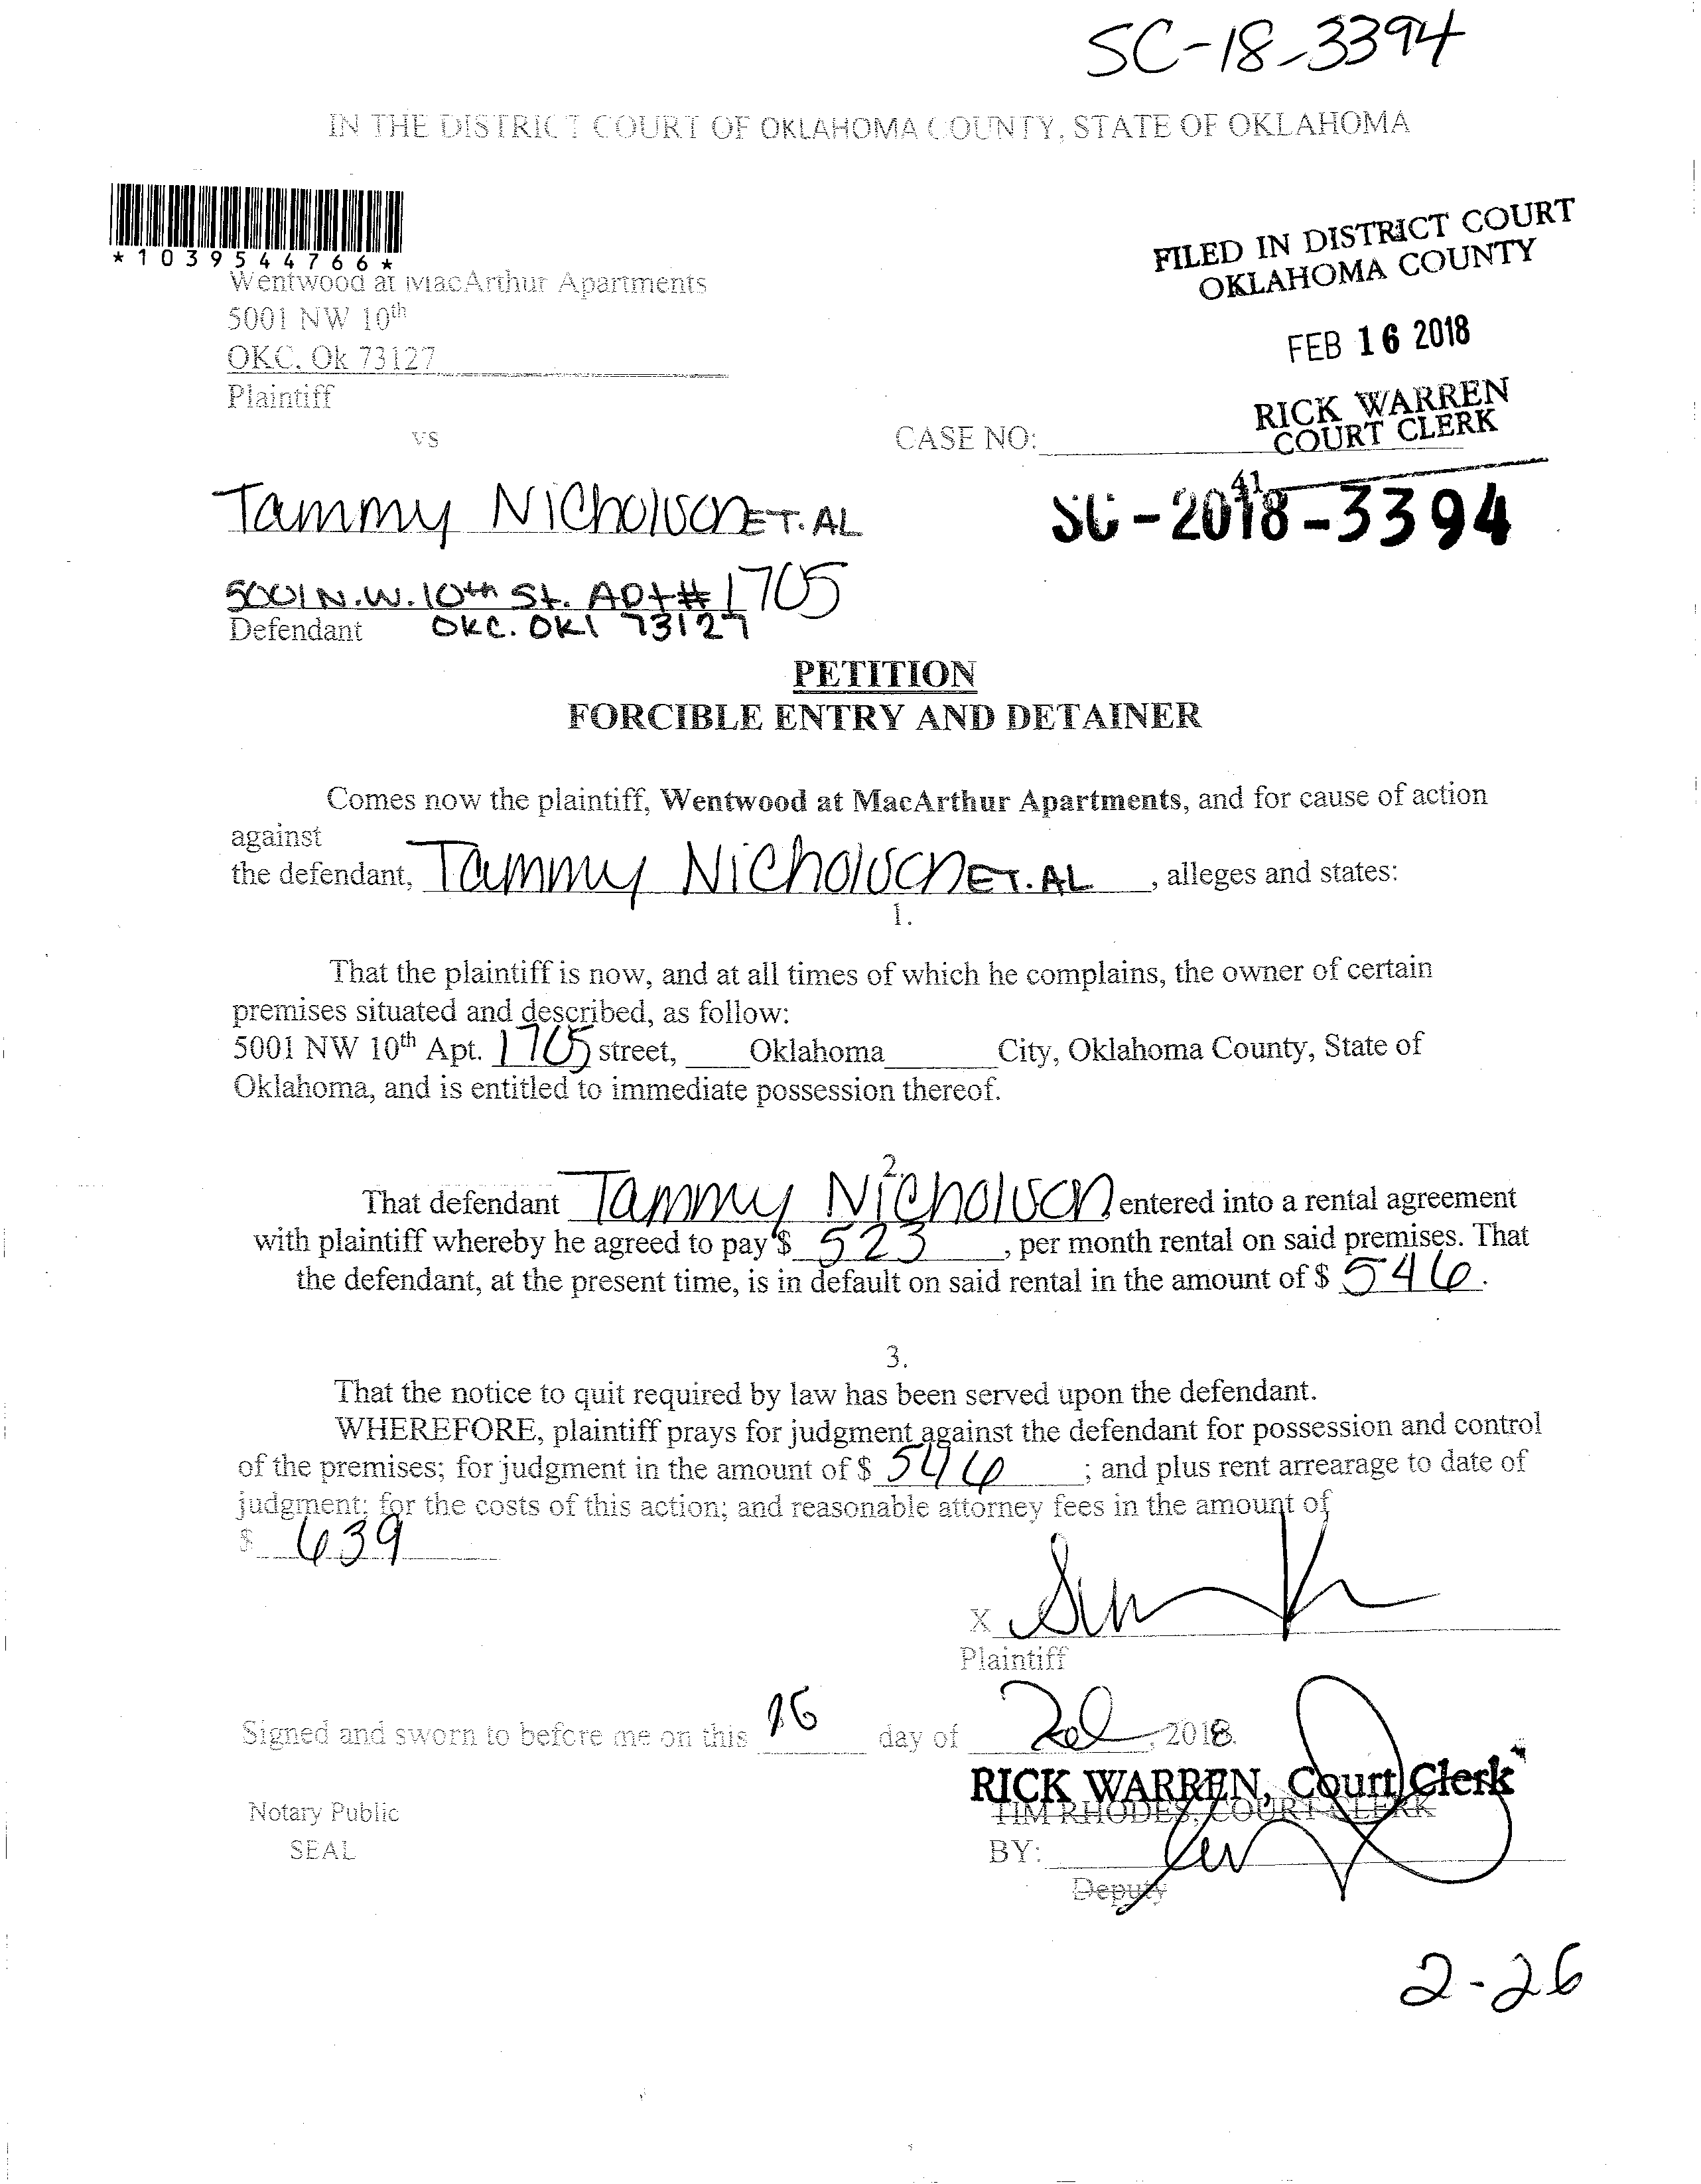 SC-18-3394
IN THE DISTRICT COURT OF OKLAHOMA COUNTY, STATE OF OKLAHOMA
*1039544766*
FILED IN DISTRICT COURT
OKLAHOMA COUNTY
Wentwood at MacArthur Apartments
5001 NW 10th
FEB 16 2018
OKC, Ok 73127
Plaintiff
RICK WARREN
COURT CLERK
vs
CASE NO:
41
Tammy Nicholson ET. AL
SC-2018-3394
5001 N.W. 10th St. Apt# 1705
Defendant OKC. OKl 73127
PETITION
FORCIBLE ENTRY AND DETAINER
Comes now the plaintiff, Wentwood at MacArthur Apartments, and for cause of action
against
the defendant, Tammy Nicholson ET. AL, alleges and states:
1.
That the plaintiff is now, and at all times of which he complains, the owner of certain
premises situated and described, as follow:
5001 NW 10th Apt. 1705 street, Oklahoma City, Oklahoma County, State of
Oklahoma, and is entitled to immediate possession thereof.
2.
That defendant Tammy Nicholson entered into a rental agreement
with plaintiff whereby he agreed to pay $ 523, per month rental on said premises. That
the defendant, at the present time, is in default on said rental in the amount of $ 546.
3.
That the notice to quit required by law has been served upon the defendant.
WHEREFORE, plaintiff prays for judgment against the defendant for possession and control
of the premises; for judgment in the amount of $ 546; and plus rent arrearage to date of
judgment; for the costs of this action; and reasonable attorney fees in the amount of
$ 639
X
Plaintiff
Signed and sworn to before me on this 16 day of Feb, 2018.
RICK WARREN, Court Clerk
TIM RHODES, COURT CLERK
Notary Public
SEAL
BY:
Deputy
2-26